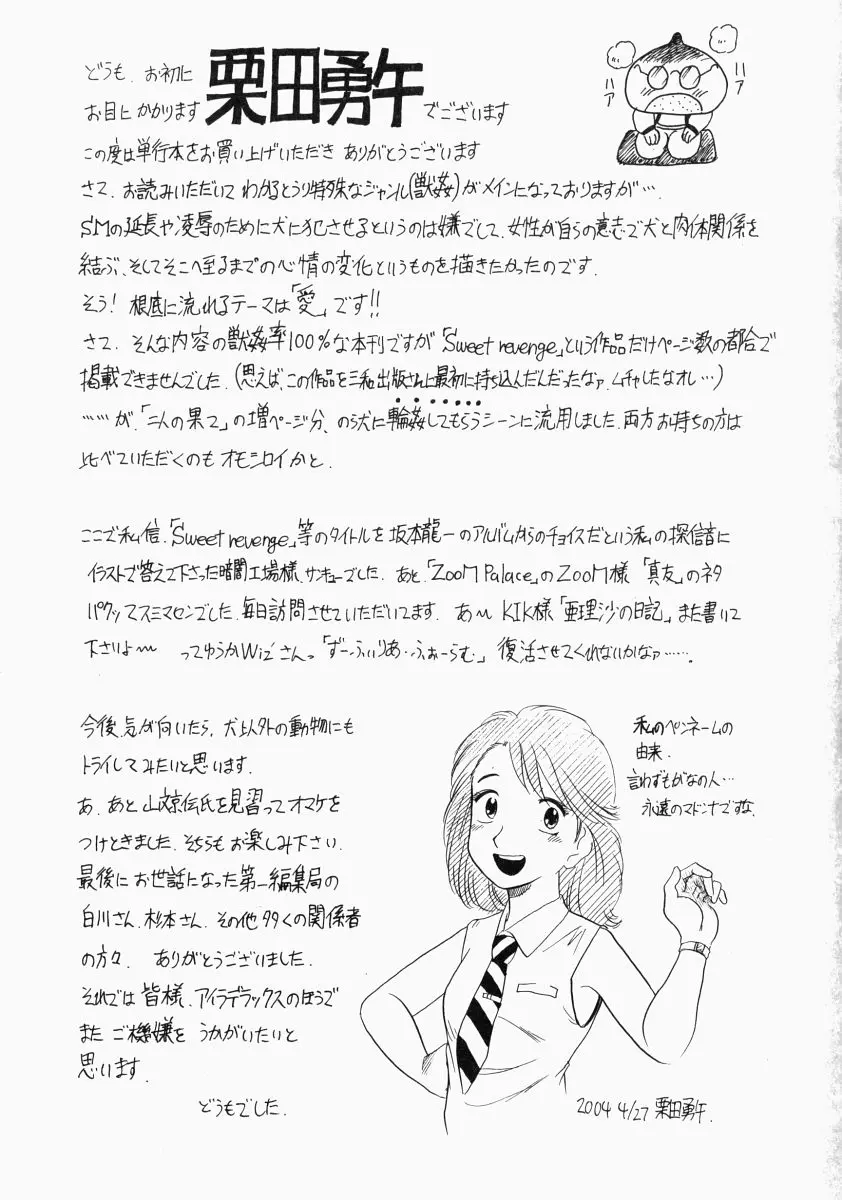 どうも、お初に
お目にかかります 栗田勇午 でございます
この度は単行本をお買い上げいただき ありがとうございます
さて、お読みいただいて わかるとうり特殊なジャンル(獣姦)がメインになっておりますが…。
SMの延長や凌辱のために犬に犯させるというのは嫌でして、女性が自らの意志で犬と肉体関係を
結ぶ、そしてそこへ至るまでの心情の変化というものを描きたかったのです.
そう! 根底に流れるテーマは「愛」です!!
さて、そんな内容の獣姦率100%な本刊ですが「Sweet revenge」という作品だけページ数の都合で
掲載できませんでした.(思えば、この作品を三和出版さんに最初に持ち込んだんだったなァ.ムチャしたなオレ…)
……が、「二人の果て」の増ページ分、のら犬に輪姦してもらうシーンに流用しました.両方お持ちの方は
比べていただくのも オモシロイかと.
ここで私信.「Sweet revenge」等のタイトルを坂本龍一のアルバムからのチョイスだという私の探信音に
イラストで答えて下さった暗闇工場様、サンキューでした. あと、「ZooM Palace」のZooM様「真友」のネタ
パクッてスミマセンでした.毎日訪問させていただいてます. あ〜 KIK様「亜理沙の日記」また書いて
下さいよ〜 ってゆうかWiz'さんっ「ずーふぃりあ・ふぉーらむ」復活させてくれないかなァ…….
今後、気が向いたら、犬以外の動物にも
トライしてみたいと思います.
あ、あと 山文京伝氏を見習ってオマケを
つけときました.そちらも お楽しみ下さい.
最後に お世話になった第一編集局の
白川さん、杉本さん、その他 多くの関係者
の方々、 ありがとうございました.
それでは 皆様、アイラデラックスのほうで
また ご機嫌を うかがいたいと
思います.
どうもでした.
ハァ
ハァ
私のペンネームの
由来.
言わずもがなの人…
永遠のマドンナですな.
2004 4/27 栗田勇午.